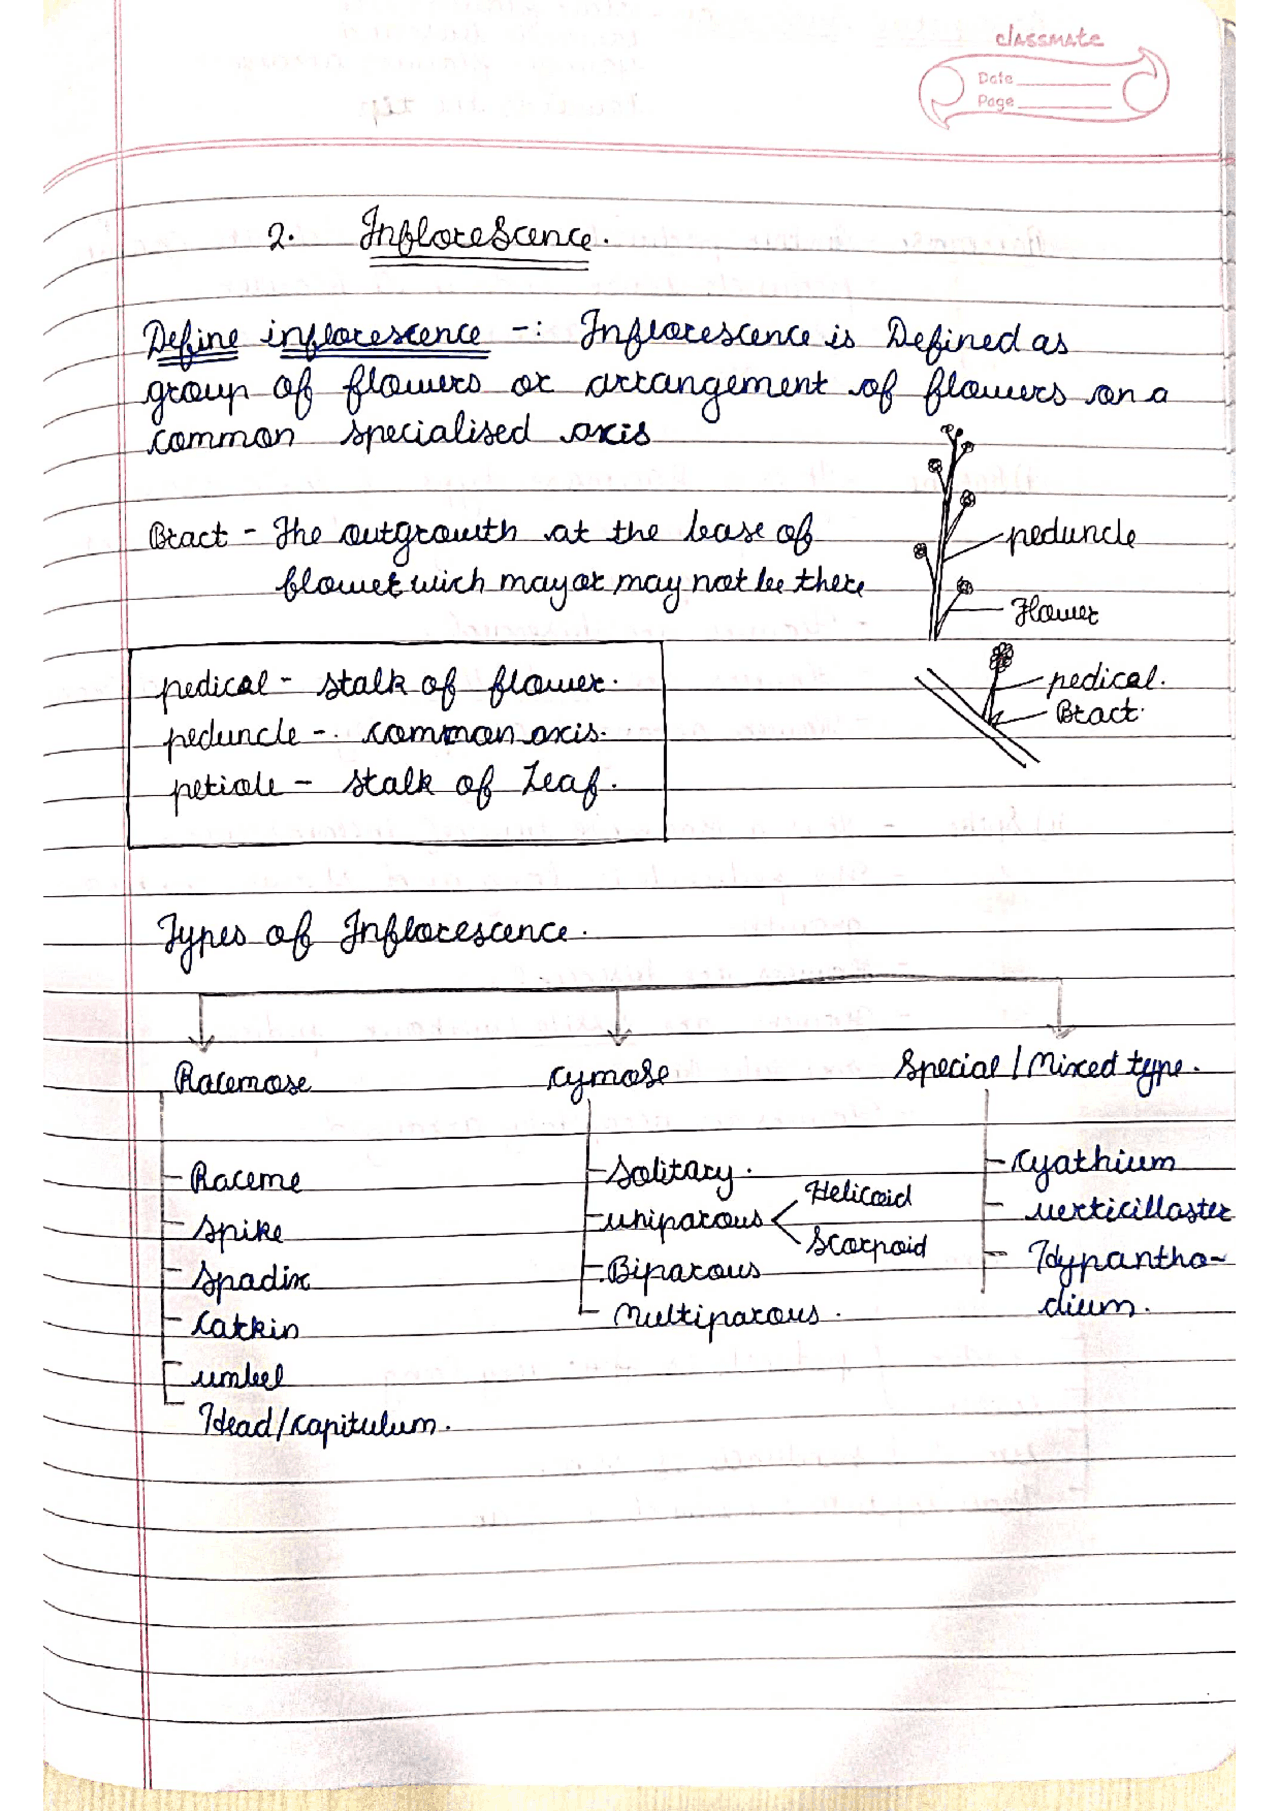 classmate
Date
Page
2. Inflorescence.
Define inflorescence -: Inflorescence is Defined as
group of flowers or arrangement of flowers on a
common specialised axis
Bract - The outgrowth at the base of
flower wich may or may not be there
peduncle
Flower
pedical.
Bract.
pedical - stalk of flower.
peduncle -. common axis.
petiole - stalk of Leaf.
Types of Inflorescence.
Racemose
cymose
Special / Mixed type.
Raceme
spike
spadix
catkin
umbel
Head/capitulum.
Solitary.
uniparous
Helicoid
Scorpoid
Biparous
multiparous.
cyathium
verticillaster
Hypantho-
dium.